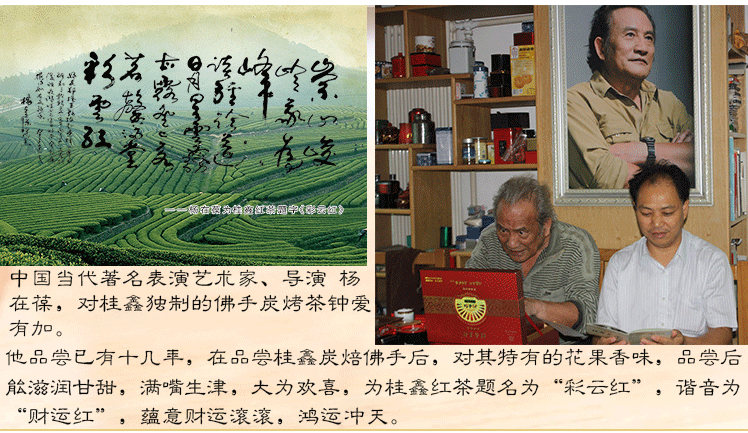 崇山峻
峰
彩雲红
——杨在葆为桂鑫红茶题字《彩云红》
中国当代著名表演艺术家、导演 杨
在葆，对桂鑫独制的佛手炭烤茶钟爱
有加。
他品尝已有十几年，在品尝桂鑫炭焙佛手后，对其特有的花果香味，品尝后
能滋润甘甜，满嘴生津，大为欢喜，为桂鑫红茶题名为“彩云红”，谐音为
“财运红”，蕴意财运滚滚，鸿运冲天。